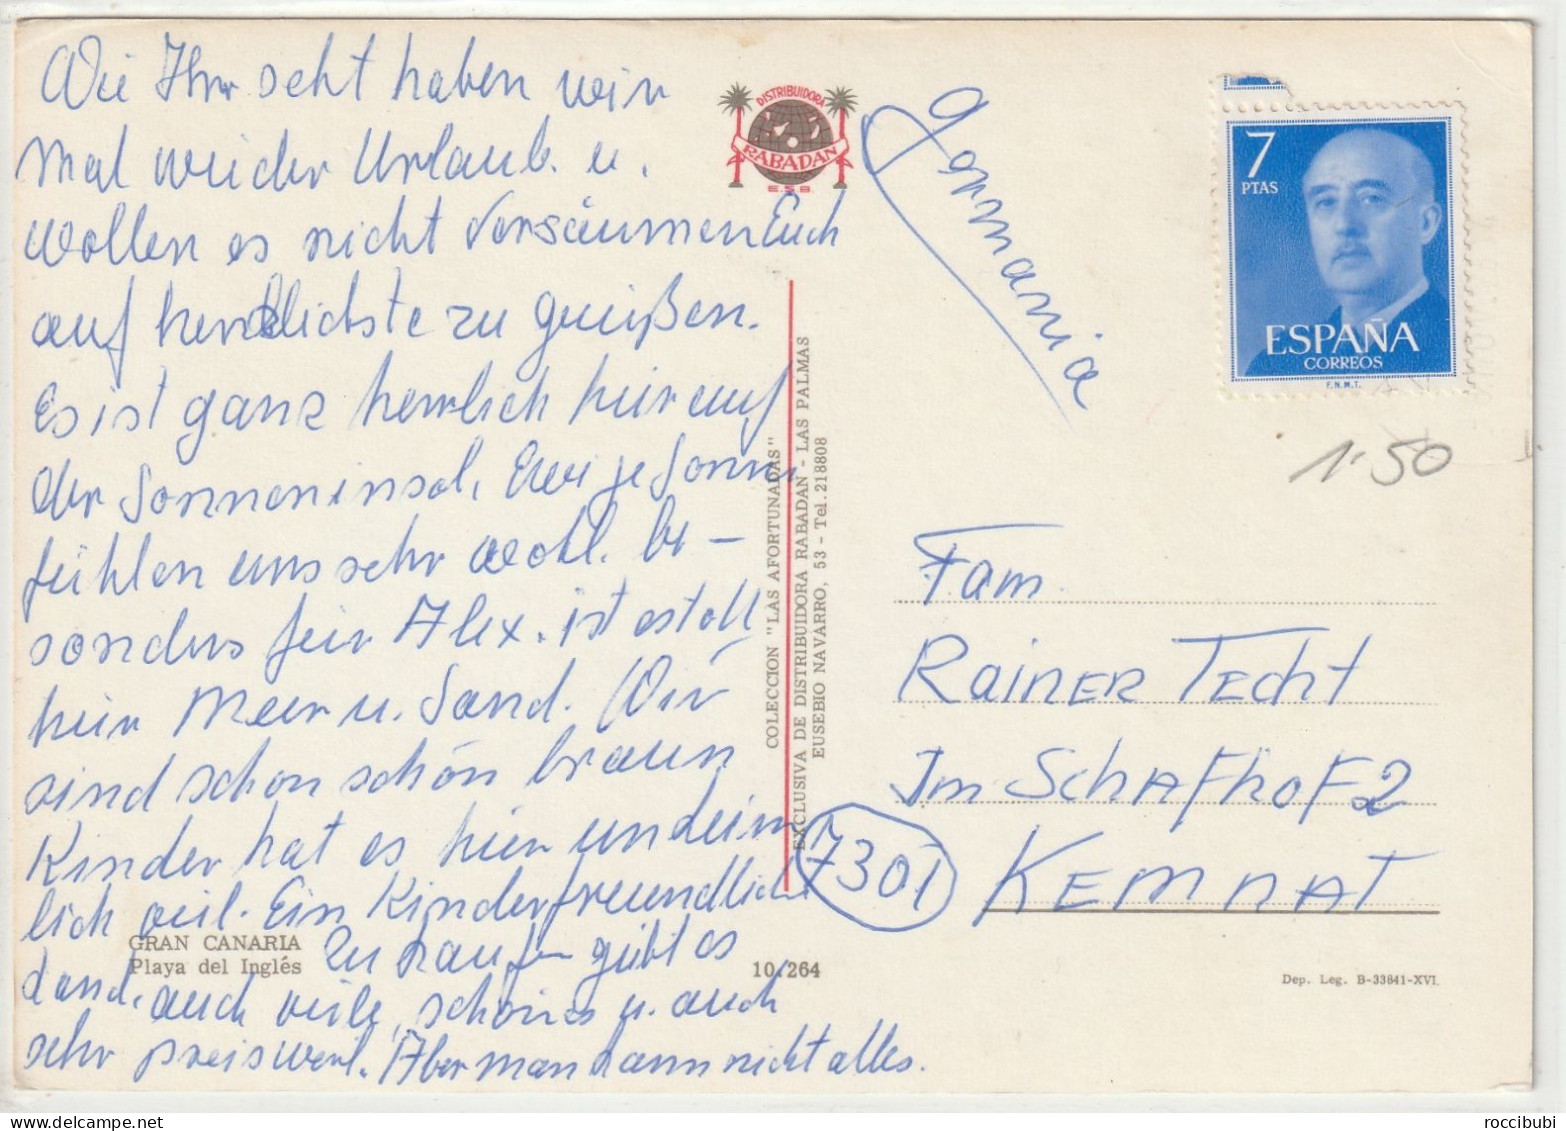 Wie Ihr seht haben wir
mal wieder Urlaub. u.
wollen es nicht versäumen Euch
auf herzlichste zu grüßen.
Es ist ganz herrlich hier auf
der Sonneninsel,
fühlen uns sehr wohl. be-
sonders für Alex. ist es toll
hier Meer u. Sand. Wir
sind schon schön braun
Kinder hat es hier
lich viel. Ein Kinderfreundlich
Land, auch viele, schönes u. auch
sehr preiswert. Aber man kann nicht alles.
zu kaufen gibt es
GRAN CANARIA
Playa del Inglés
10.264
DISTRIBUIDORA
RABADAN
E.S.B.
COLECCION "LAS AFORTUNADAS"
EXCLUSIVA DE DISTRIBUIDORA RABADAN - LAS PALMAS
EUSEBIO NAVARRO, 53 - Tel. 218808
Germania
7
PTAS
ESPAÑA
CORREOS
F.N.M.T.
1.50
Fam.
Rainer Techt
Im Schafhof 2
7301 Kemnat
Dep. Leg. B-33841-XVI.
roccibubi